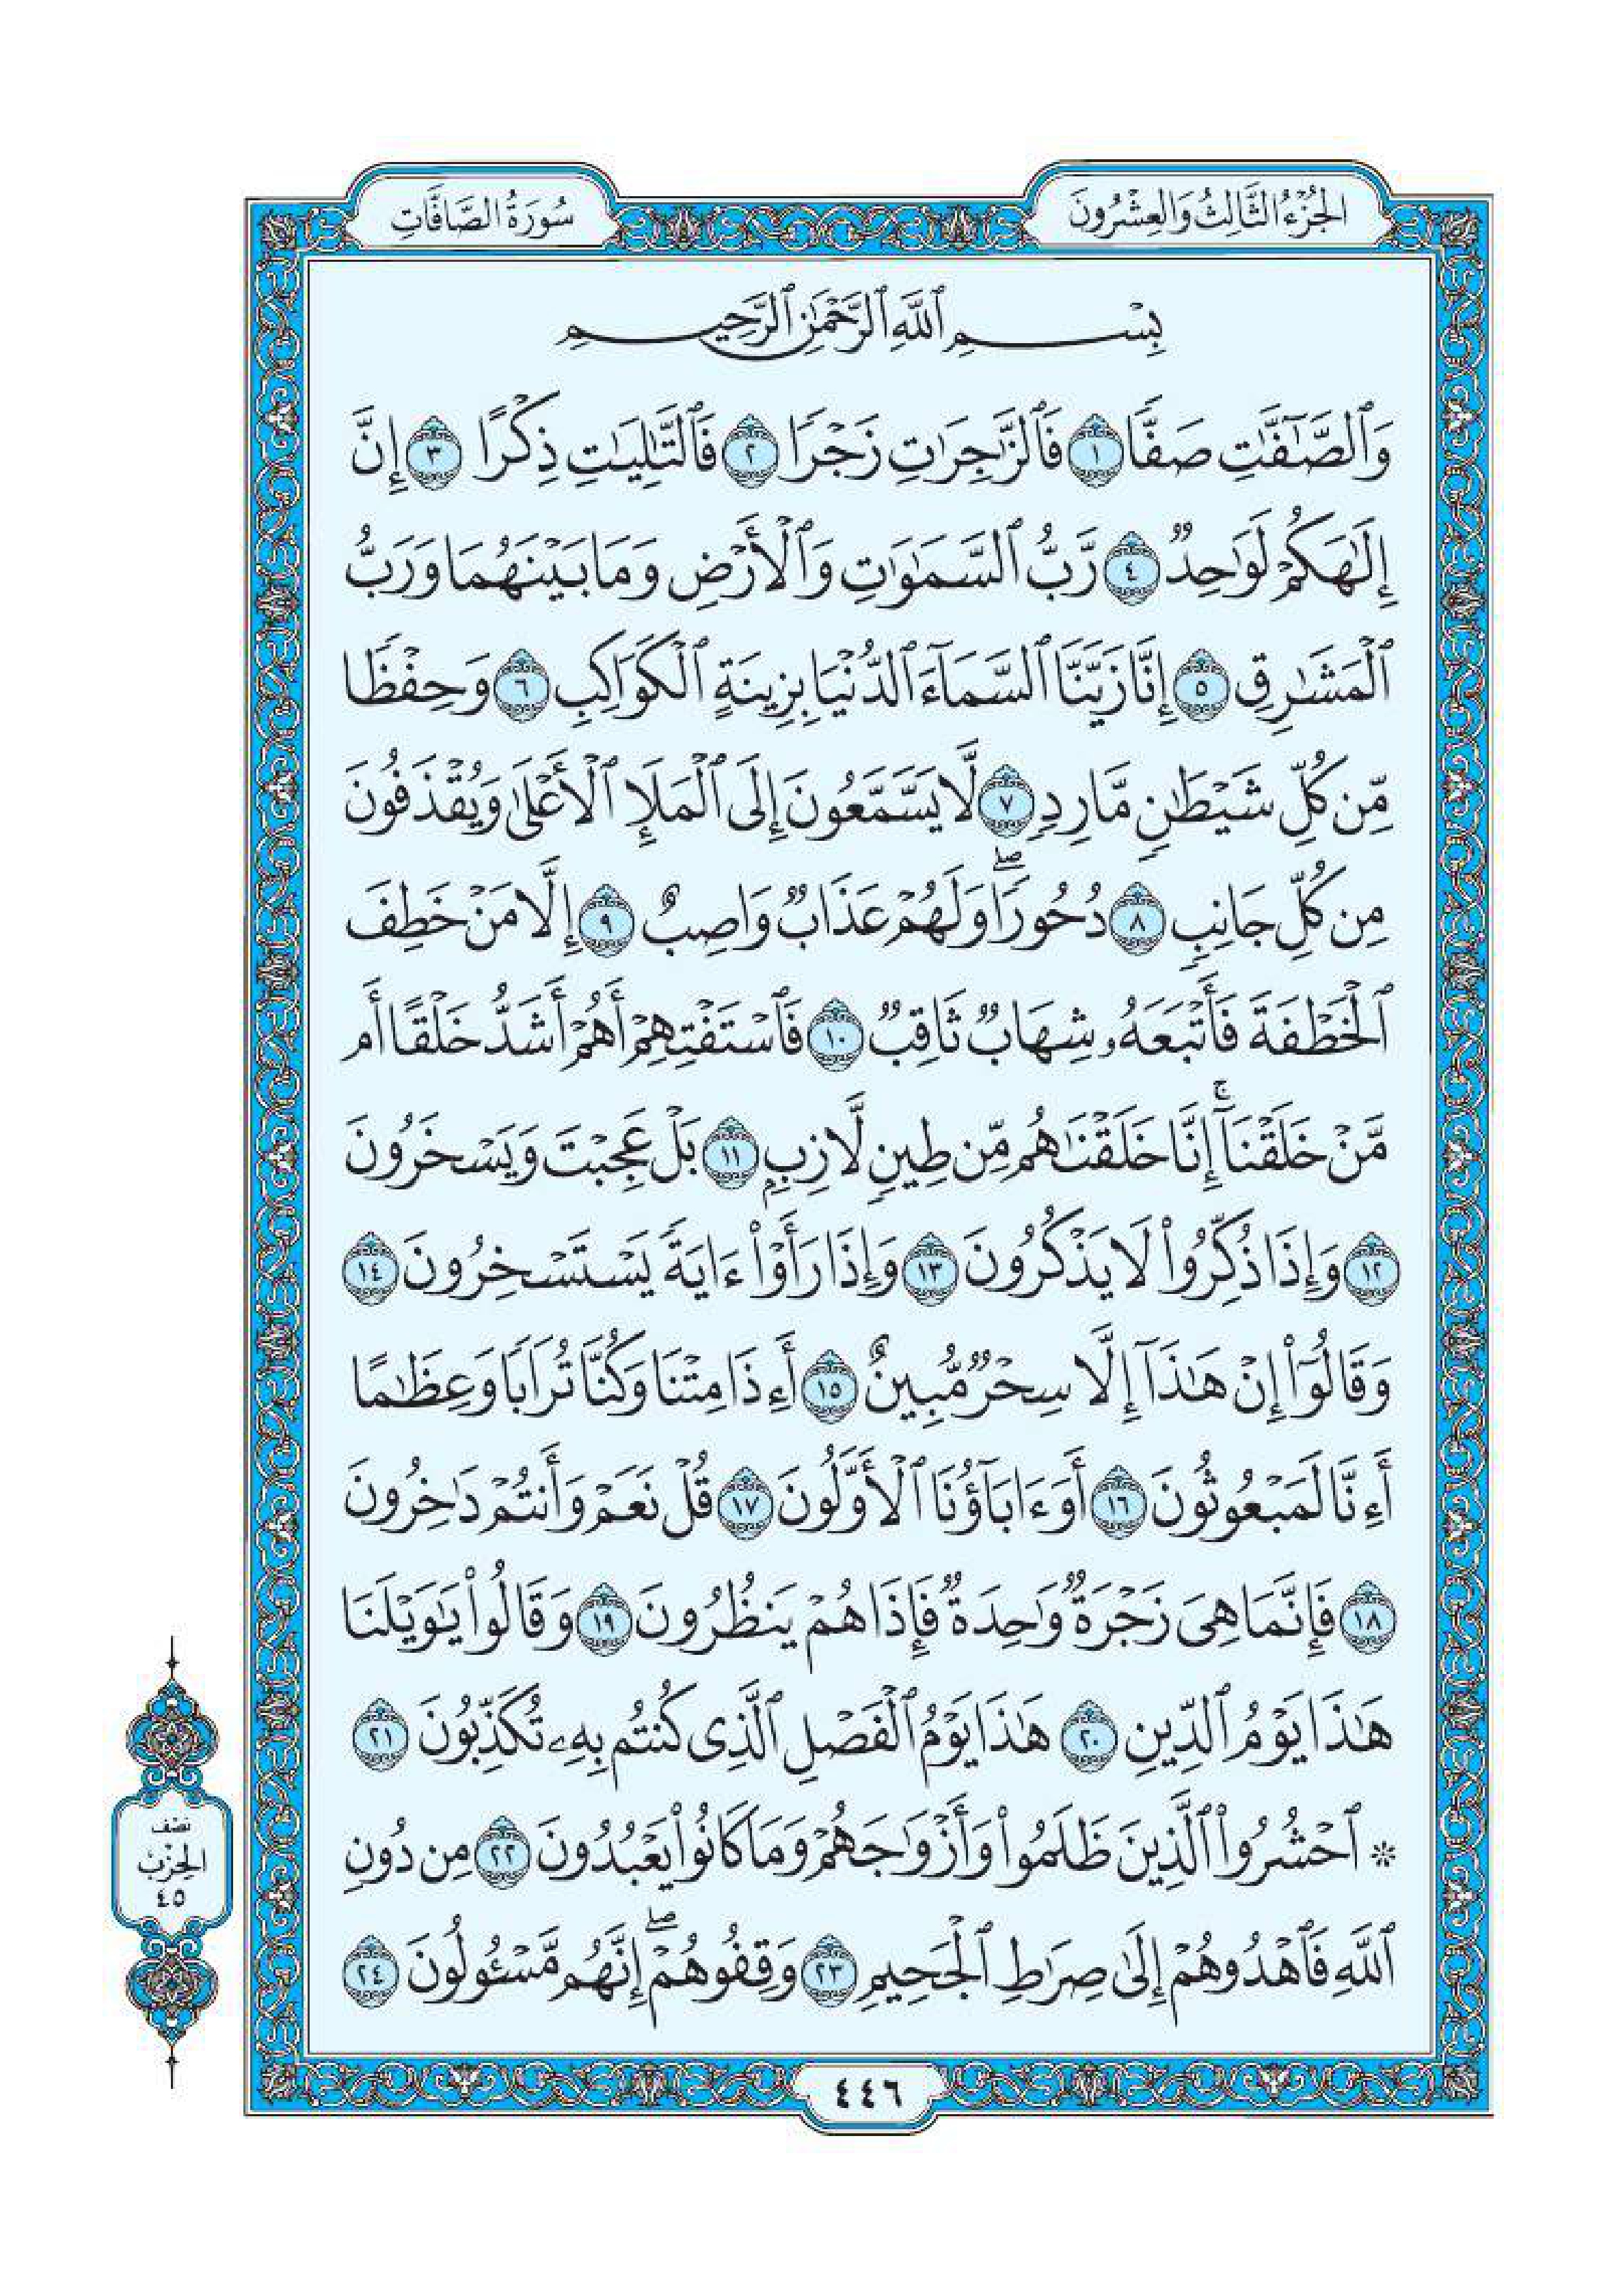 الجُزْءُ الثَّالِثُ وَالعِشْرُونَ
سُورَةُ الصَّافَّاتِ
بِسْمِ ٱللَّهِ ٱلرَّحْمَٰنِ ٱلرَّحِيمِ
وَٱلصَّٰٓفَّٰتِ صَفًّا ١ فَٱلزَّٰجِرَٰتِ زَجْرًا ٢ فَٱلتَّٰلِيَٰتِ ذِكْرًا ٣ إِنَّ
إِلَٰهَكُمْ لَوَٰحِدٌ ٤ رَّبُّ ٱلسَّمَٰوَٰتِ وَٱلْأَرْضِ وَمَا بَيْنَهُمَا وَرَبُّ
ٱلْمَشَٰرِقِ ٥ إِنَّا زَيَّنَّا ٱلسَّمَآءَ ٱلدُّنْيَا بِزِينَةٍ ٱلْكَوَاكِبِ ٦ وَحِفْظًا
مِّن كُلِّ شَيْطَٰنٍ مَّارِدٍ ٧ لَّا يَسَّمَّعُونَ إِلَى ٱلْمَلَإِ ٱلْأَعْلَىٰ وَيُقْذَفُونَ
مِن كُلِّ جَانِبٍ ٨ دُحُورًا ۖ وَلَهُمْ عَذَابٌ وَاصِبٌ ٩ إِلَّا مَنْ خَطِفَ
ٱلْخَطْفَةَ فَأَتْبَعَهُۥ شِهَابٌ ثَاقِبٌ ١٠ فَٱسْتَفْتِهِمْ أَهُمْ أَشَدُّ خَلْقًا أَم
مَّنْ خَلَقْنَآ ۚ إِنَّا خَلَقْنَٰهُم مِّن طِينٍ لَّازِبٍۭ ١١ بَلْ عَجِبْتَ وَيَسْخَرُونَ
١٢ وَإِذَا ذُكِّرُوا۟ لَا يَذْكُرُونَ ١٣ وَإِذَا رَأَوْا۟ ءَايَةً يَسْتَسْخِرُونَ ١٤
وَقَالُوٓا۟ إِنْ هَٰذَآ إِلَّا سِحْرٌ مُّبِينٌ ١٥ أَءِذَا مِتْنَا وَكُنَّا تُرَابًا وَعِظَٰمًا
أَءِنَّا لَمَبْعُوثُونَ ١٦ أَوَءَابَآؤُنَا ٱلْأَوَّلُونَ ١٧ قُلْ نَعَمْ وَأَنتُمْ دَٰخِرُونَ
١٨ فَإِنَّمَا هِىَ زَجْرَةٌ وَٰحِدَةٌ فَإِذَا هُمْ يَنظُرُونَ ١٩ وَقَالُوا۟ يَٰوَيْلَنَا
هَٰذَا يَوْمُ ٱلدِّينِ ٢٠ هَٰذَا يَوْمُ ٱلْفَصْلِ ٱلَّذِى كُنتُم بِهِۦ تُكَذِّبُونَ ٢١
* ٱحْشُرُوا۟ ٱلَّذِينَ ظَلَمُوا۟ وَأَزْوَٰجَهُمْ وَمَا كَانُوا۟ يَعْبُدُونَ ٢٢ مِن دُونِ
ٱللَّهِ فَٱهْدُوهُمْ إِلَىٰ صِرَٰطِ ٱلْجَحِيمِ ٢٣ وَقِفُوهُمْ ۖ إِنَّهُم مَّسْـُٔولُونَ ٢٤
نصف
الحِزب
٤٥
٤٤٦